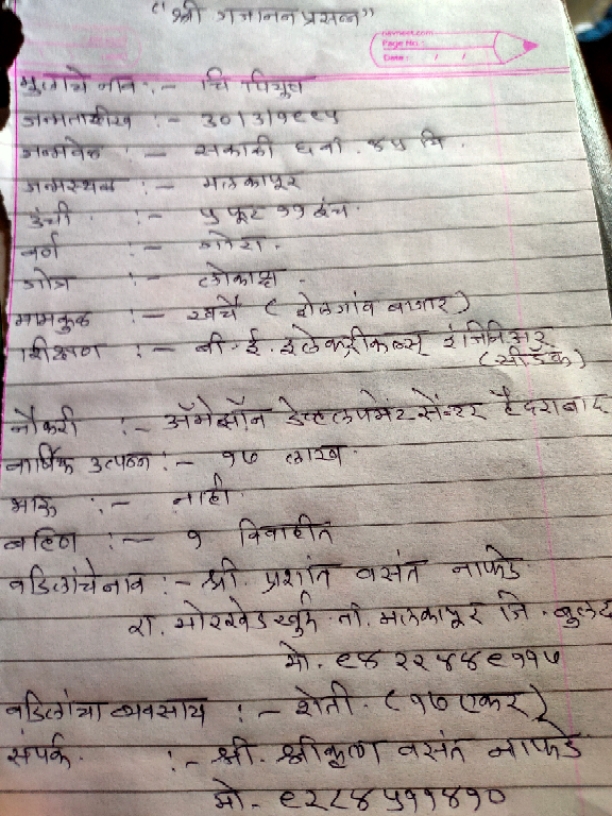 "श्री गजानन प्रसन्न"
navneet.com
Page No.:
Date: / /
मुलाचे नाव :- चि पियुष
जन्मतारीख :- ३०।३।१९९५
जन्मवेळ :- सकाळी ६ वा. ४५ मि.
जन्मस्थळ :- मलकापूर
उंची :- ५ फूट ११ इंच.
वर्ण :- गोरा.
गोत्र :-
मामकुळ :- खर्चे ( शेलगांव बाजार )
शिक्षण :- बी.ई. इलेक्ट्रीकल्स् इंजिनिअर
(सीडॅक)
नौकरी :- ॲमेझॉन डेव्हलपमेंट सेंन्टर हैदराबाद
वार्षिक उत्पन्न :- १७ लाख.
भाऊ :- नाही.
बहिण :- १ विवाहीत
वडिलांचे नाव :- श्री. प्रशांत वसंत नाफडे
रा. मोरखेड खुर्द ता. मलकापूर जि. बुलढ
मो. ९४२२४४९११७
वडिलांचा व्यवसाय :- शेती. (१७ एकर)
संपर्क. :- श्री. श्रीकृष्ण वसंत नाफडे
मो- ९२८४५११४१०